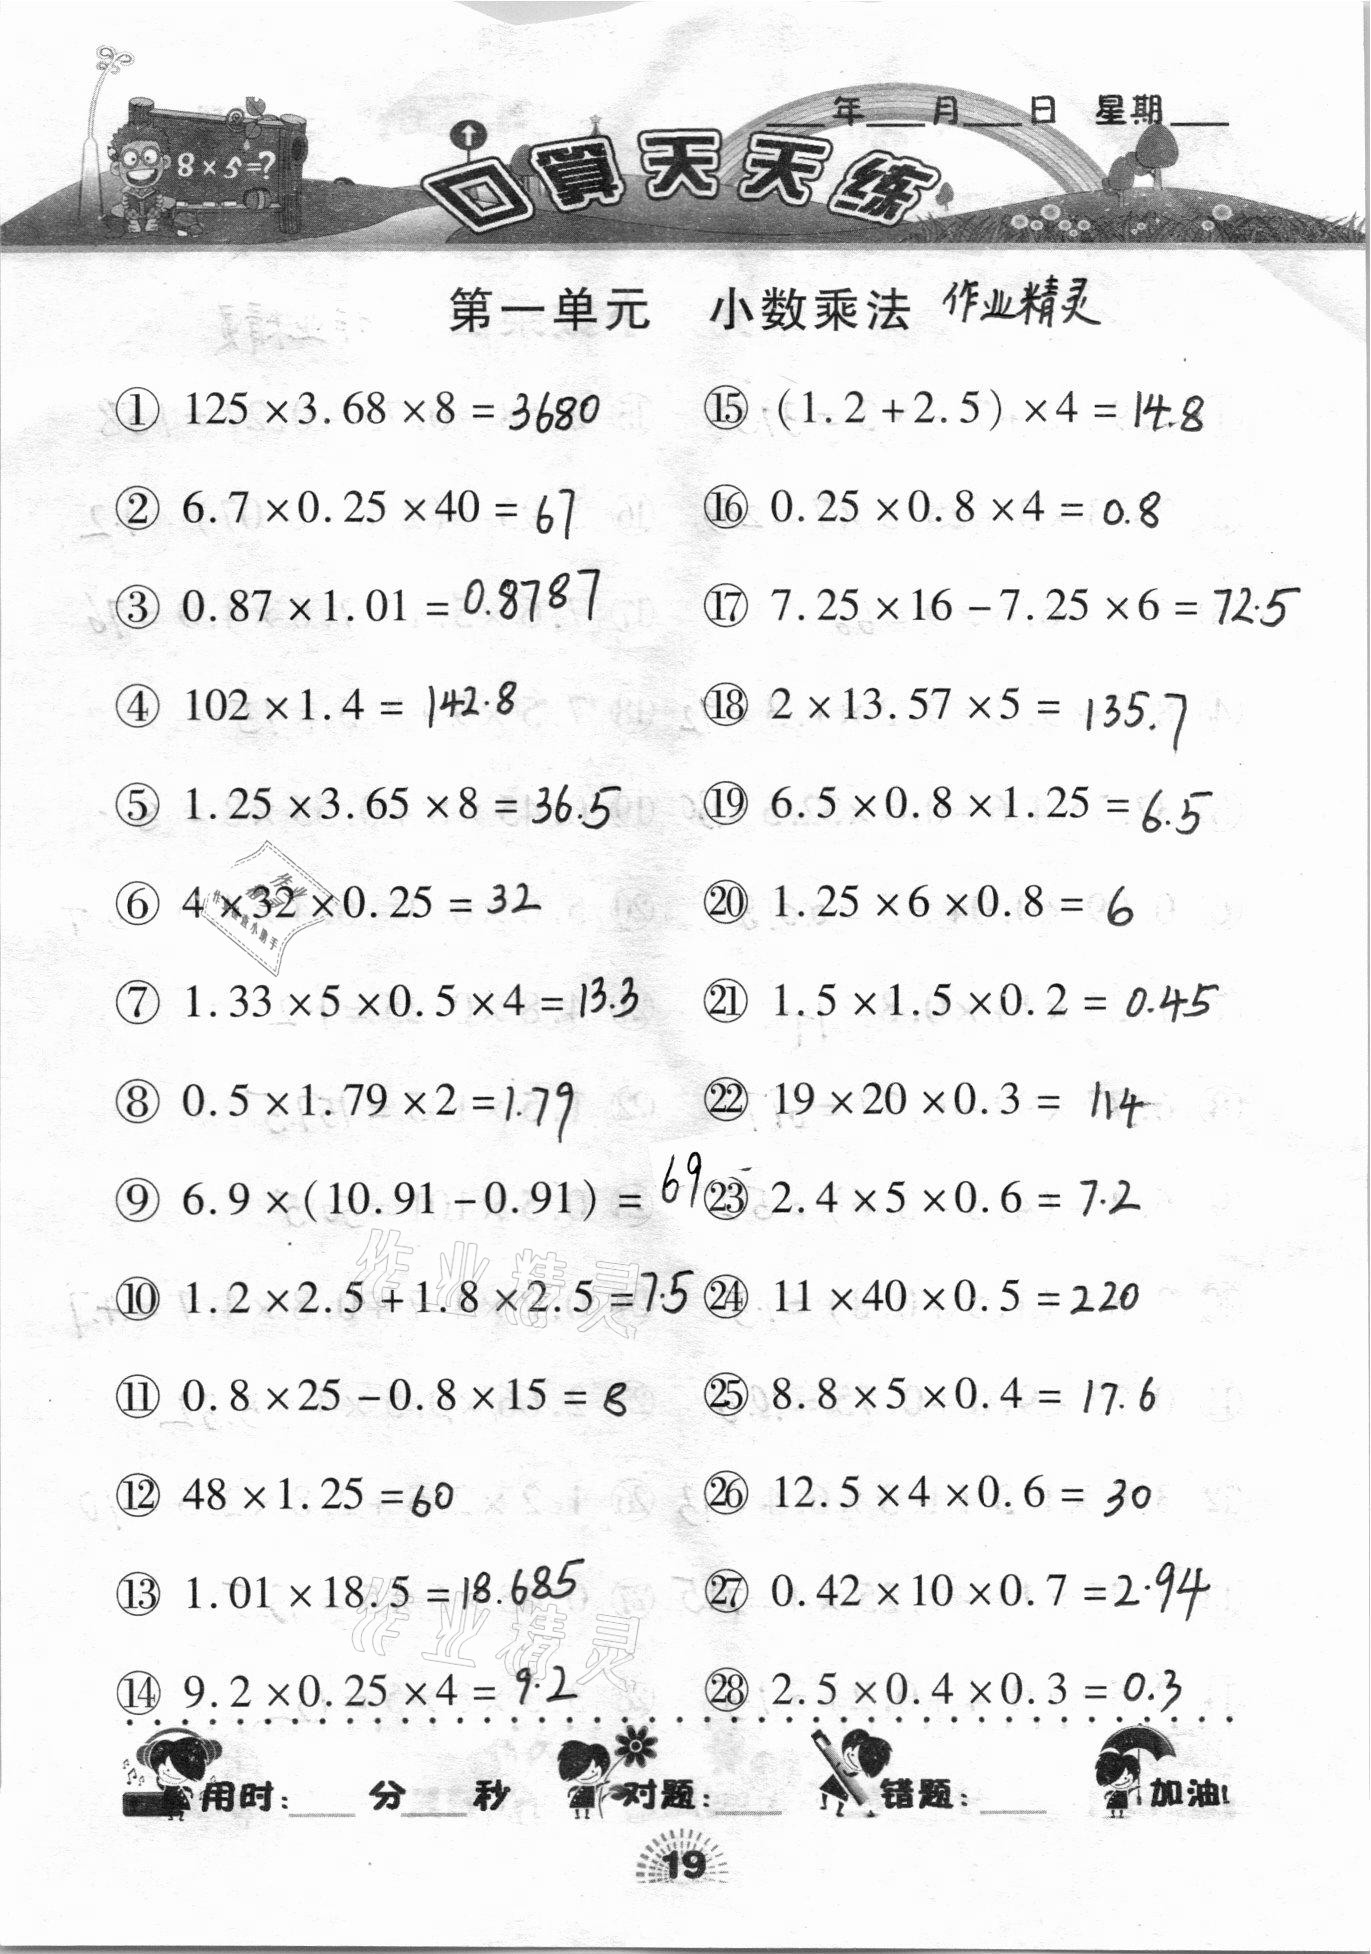 ____年____月____日 星期____
8×5=?
口算天天练
第一单元 小数乘法 作业精灵
① 125×3.68×8=3680
② 6.7×0.25×40=67
③ 0.87×1.01=0.8787
④ 102×1.4=142.8
⑤ 1.25×3.65×8=36.5
⑥ 4×32×0.25=32
⑦ 1.33×5×0.5×4=13.3
⑧ 0.5×1.79×2=1.79
⑨ 6.9×(10.91-0.91)=69
⑩ 1.2×2.5+1.8×2.5=7.5
⑪ 0.8×25-0.8×15=8
⑫ 48×1.25=60
⑬ 1.01×18.5=18.685
⑭ 9.2×0.25×4=9.2
⑮ (1.2+2.5)×4=14.8
⑯ 0.25×0.8×4=0.8
⑰ 7.25×16-7.25×6=72.5
⑱ 2×13.57×5=135.7
⑲ 6.5×0.8×1.25=6.5
⑳ 1.25×6×0.8=6
㉑ 1.5×1.5×0.2=0.45
㉒ 19×20×0.3=114
㉓ 2.4×5×0.6=7.2
㉔ 11×40×0.5=220
㉕ 8.8×5×0.4=17.6
㉖ 12.5×4×0.6=30
㉗ 0.42×10×0.7=2.94
㉘ 2.5×0.4×0.3=0.3
作业精灵
作业精灵
作业精灵
用时:____分____秒 对题:____ 错题:____ 加油!
19